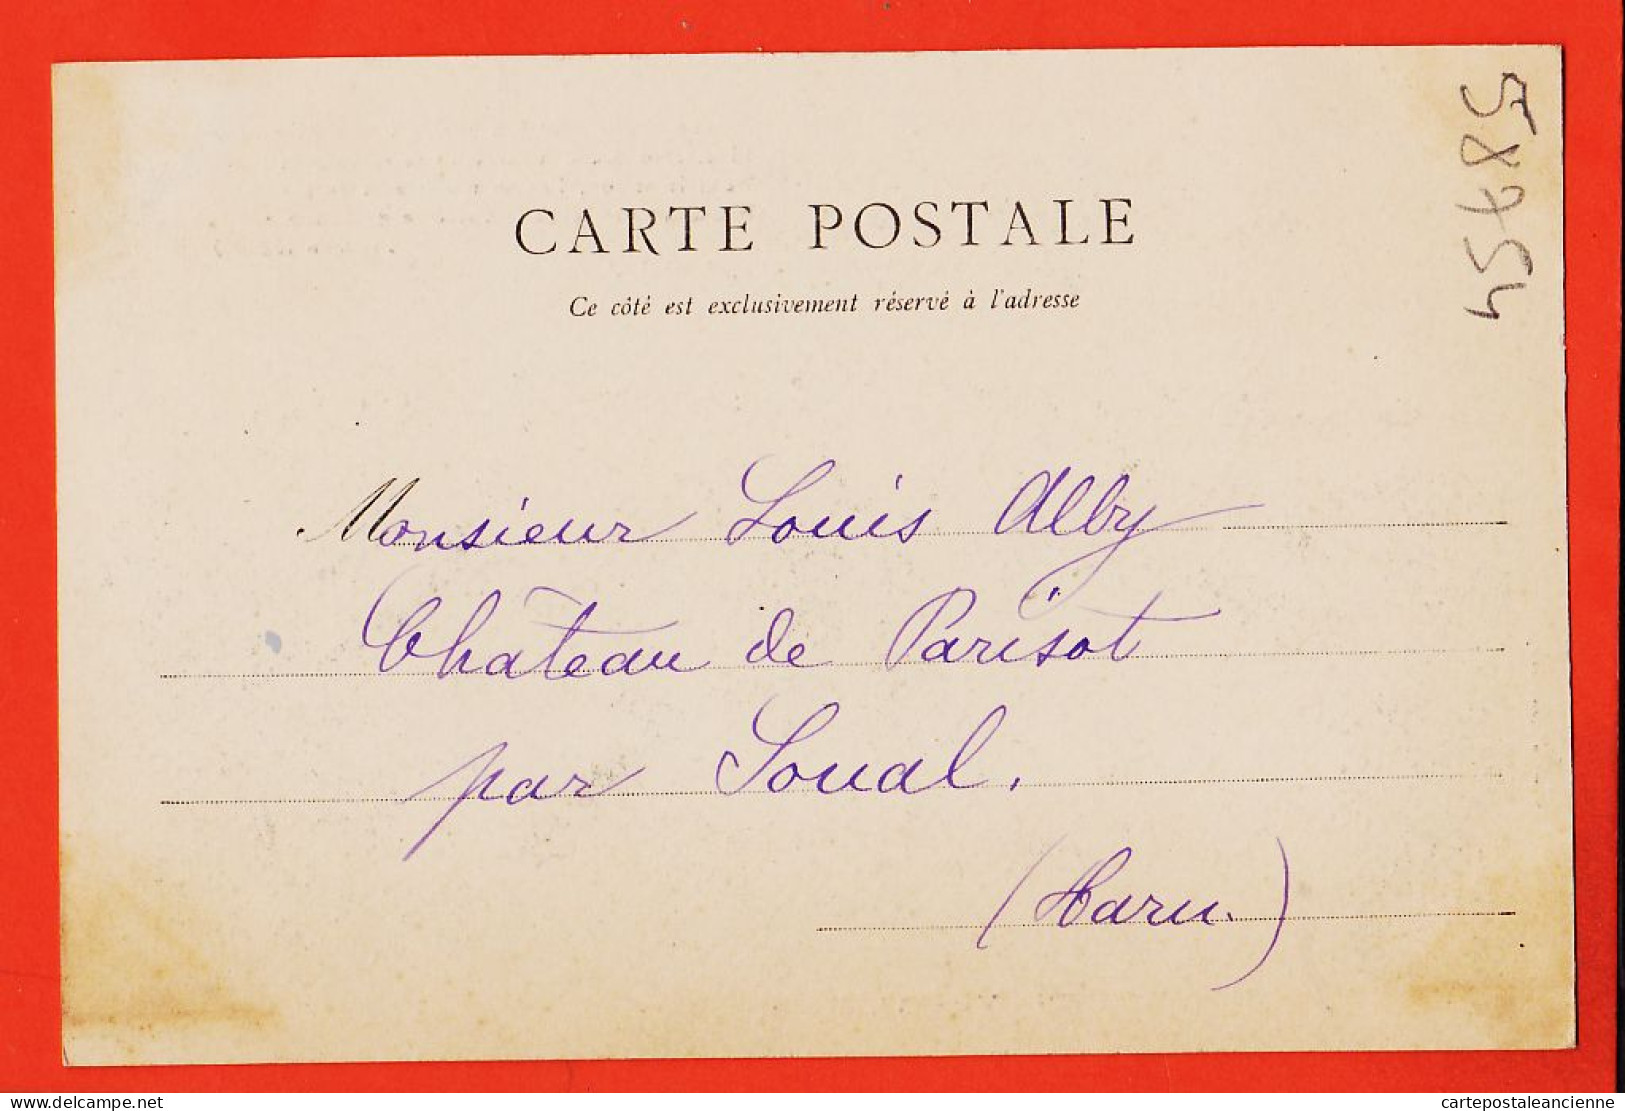 CARTE POSTALE
Ce côté est exclusivement réservé à l'adresse
Monsieur Louis Alby
Château de Parisot
par Soual.
(Tarn.)
delcampe.net
cartepostaleancienne